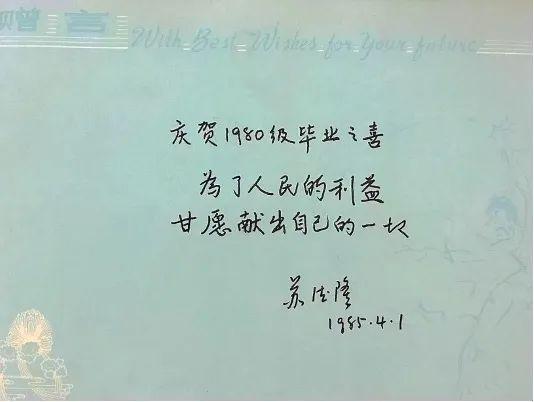 赠言
With Best Wishes for Your future
庆贺1980级毕业之喜
為了人民的利益
甘愿献出自己的一切
苏德隆
1985.4.1